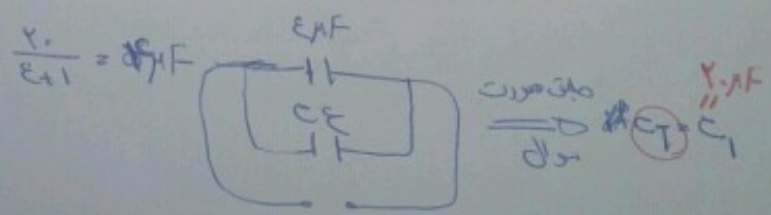 ۲۰/(۴+۱) = ۴μF
۴μF
C۴
طبق صورت سوال
C_T = C_۱
۲۰μF